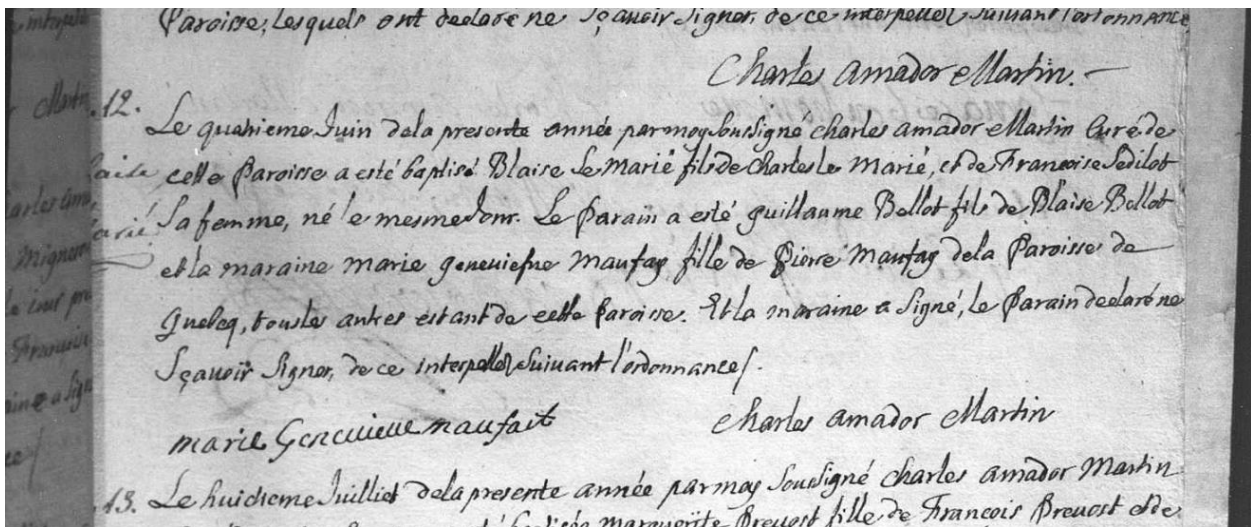 Paroisse, Lesquels ont declaré ne Sçavoir Signer, de ce interpellez Suivant l'ordonnance
Charles amador Martin.
12. Le quatrieme Juin dela presente année parmoy Soussigné charles amador Martin Curé de
cette Paroisse a esté baptisé Blaise Le Marié fils de Charles le Marié, et de Francoise Sedilot
Sa femme, né le mesme Jour. Le Parain a esté guillaume Bellot fils de Blaise Bellot
et la maraine marie geneviefve Maufay fille de Pierre Maufay dela Paroisse de
Quebeq, tous les autres estant de cette Paroisse. Et la maraine a Signé, le Parain declaré ne
Sçavoir Signer, de ce interpellez Suivant l'ordonnance.
marie Genevieve maufait
Charles amador Martin
13. Le huictieme Juilliet dela presente année parmoy Soussigné charles amador Martin
Marguerite Prevost fille de Francois Prevost et de